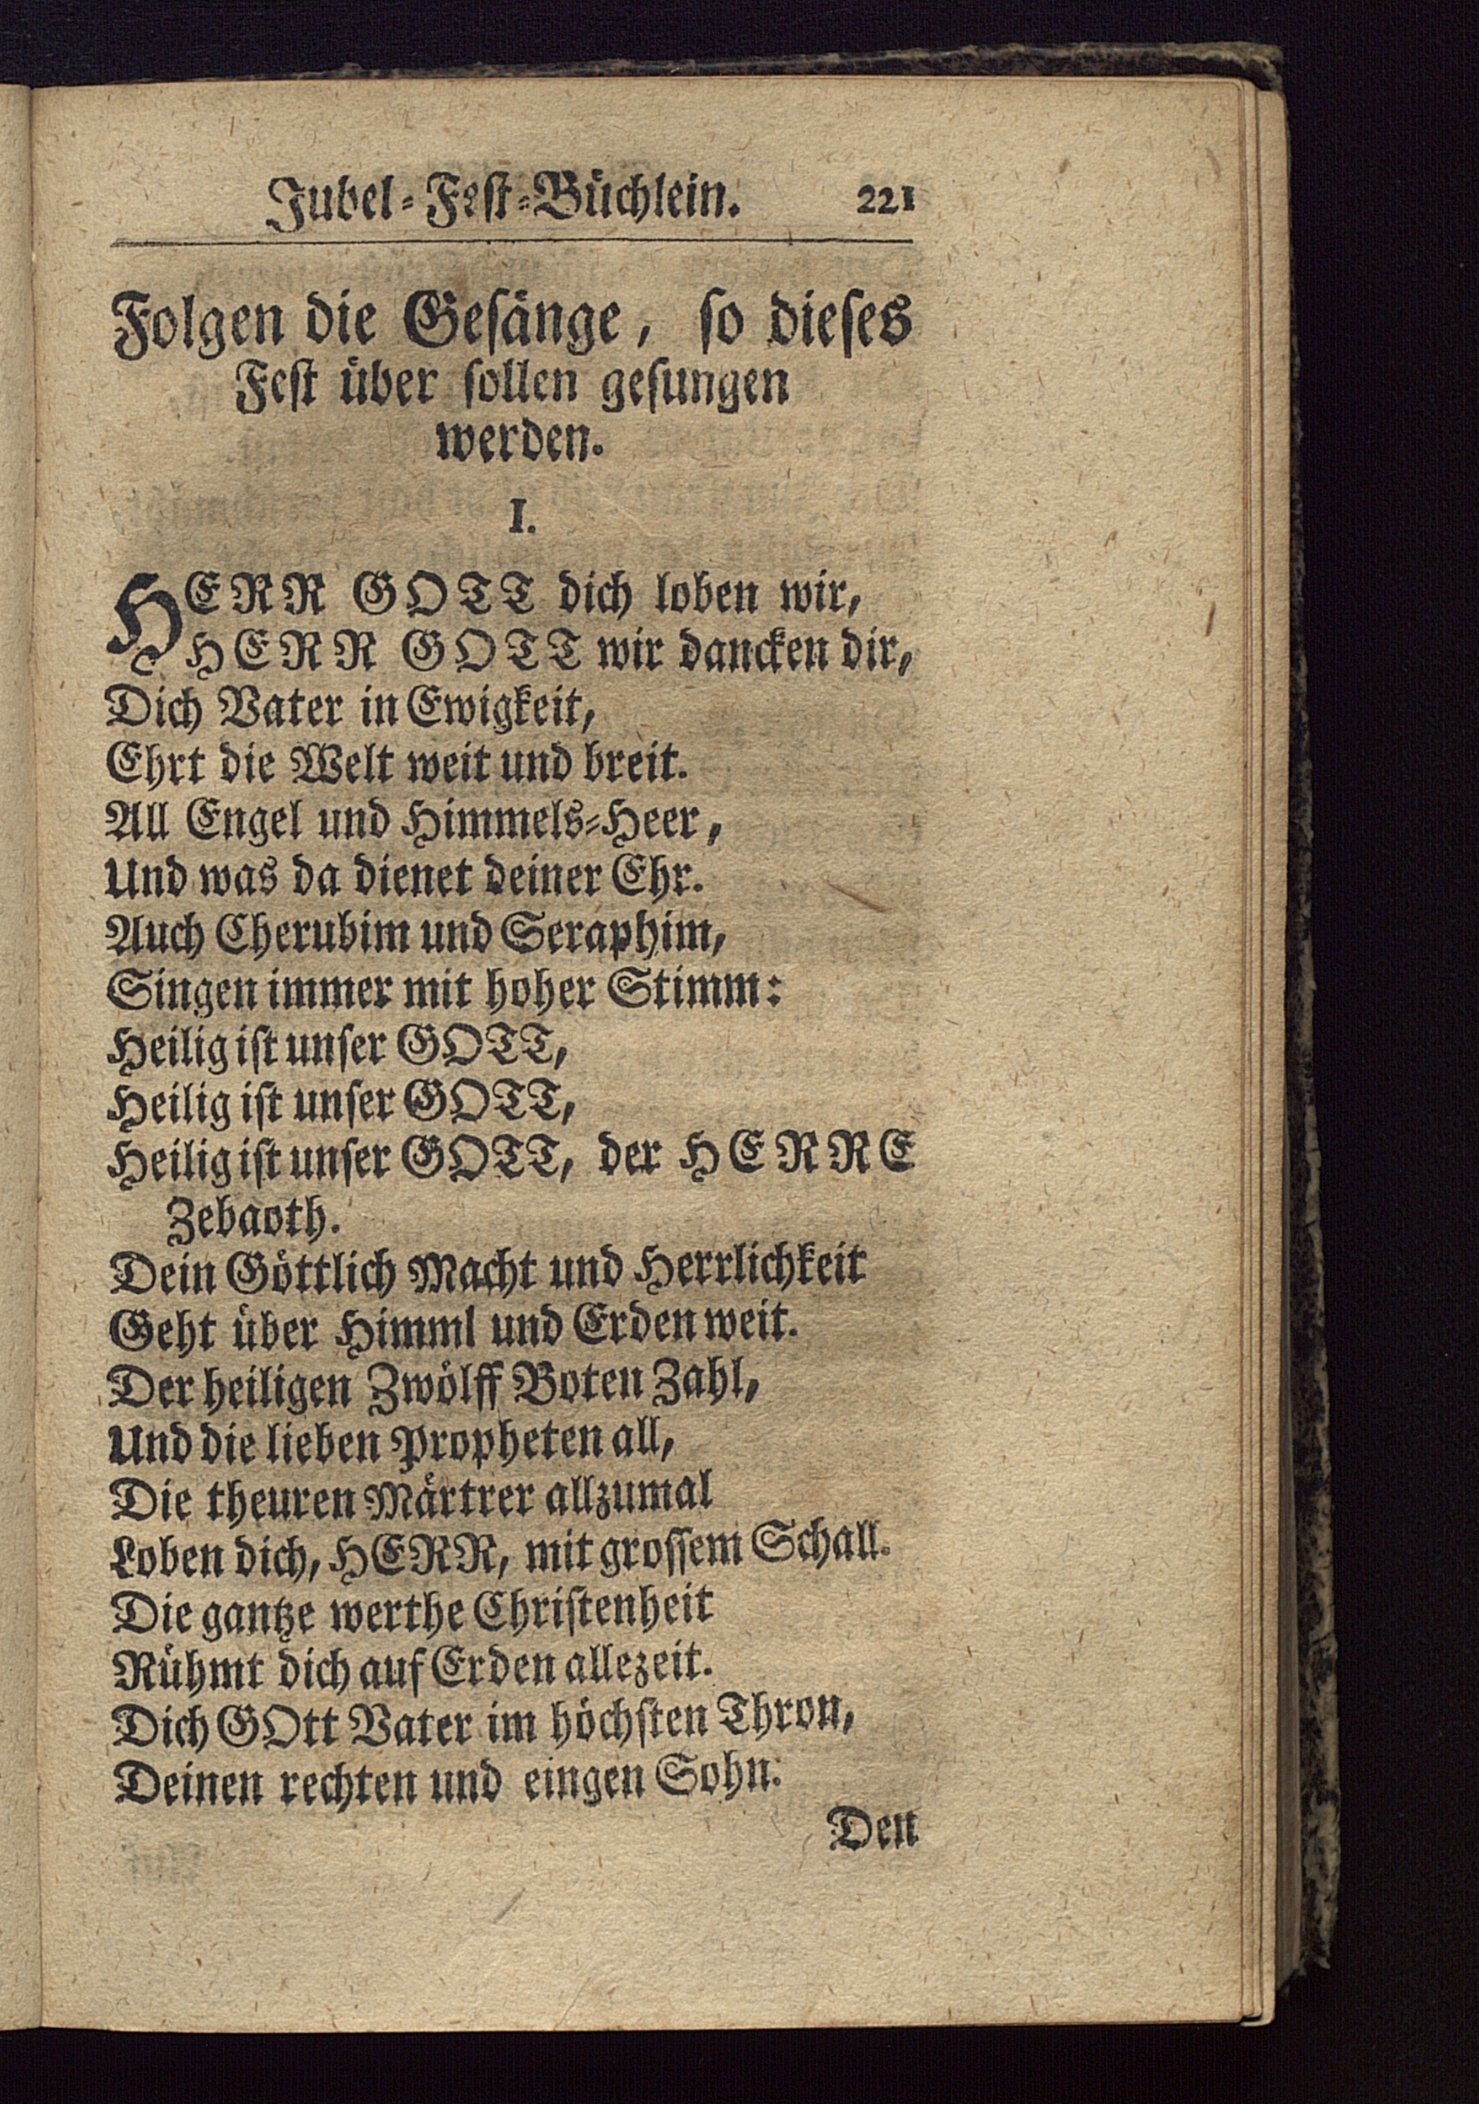 Jubel-Fest-Büchlein. 221
Folgen die Gesänge, so dieses
Fest über sollen gesungen
werden.
I.
HERR GOTT dich loben wir,
HERR GOTT wir dancken dir,
Dich Vater in Ewigkeit,
Ehrt die Welt weit und breit.
All Engel und Himmels-Heer,
Und was da dienet deiner Ehr.
Auch Cherubim und Seraphim,
Singen immer mit hoher Stimm:
Heilig ist unser GOTT,
Heilig ist unser GOTT,
Heilig ist unser GOTT, der HERRE
Zebaoth.
Dein Göttlich Macht und Herrlichkeit
Geht über Himml und Erden weit.
Der heiligen Zwölff Boten Zahl,
Und die lieben Propheten all,
Die theuren Märtrer allzumal
Loben dich, HERR, mit grossem Schall.
Die gantze werthe Christenheit
Rühmt dich auf Erden allezeit.
Dich GOtt Vater im höchsten Thron,
Deinen rechten und eingen Sohn.
Den